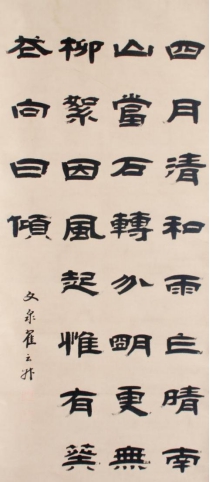 四月清和雨乍晴南
山當戶轉分明更無
柳絮因風起惟有葵
花向日傾
文泉翟云升